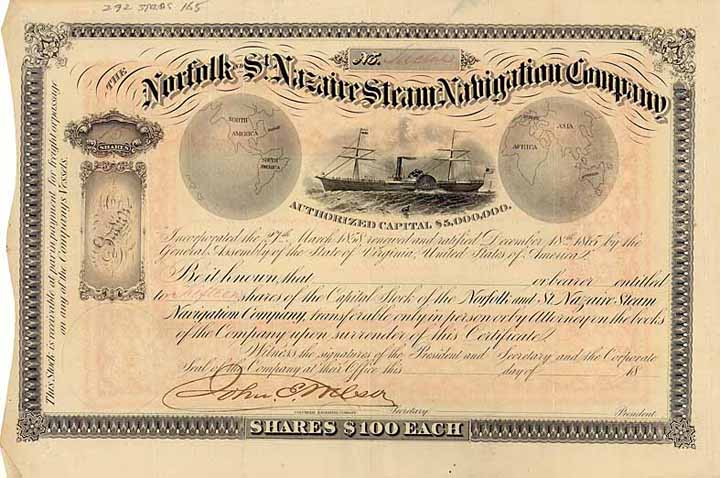 292 165
No.
THE
Norfolk & St. Nazaire Steam Navigation Company
SHARES
NORTH AMERICA
SOUTH AMERICA
ASIA
AFRICA
AUTHORIZED CAPITAL $5,000,000.
This Stock is receivable at par in payment for freight or passage
on any of the Company's Vessels.
Incorporated the 27th March 1858 renewed and ratified December 18th 1865 by the
General Assembly of the State of Virginia, United States of America.
Be it known, that or bearer entitled
to shares of the Capital Stock of the Norfolk and St. Nazaire Steam
Navigation Company, transferable only in person or by Attorney on the books
of the Company upon surrender of this Certificate.
Witness the signatures of the President and Secretary and the Corporate
Seal of the Company at their Office this day of 18
Secretary. President.
SHARES $100 EACH